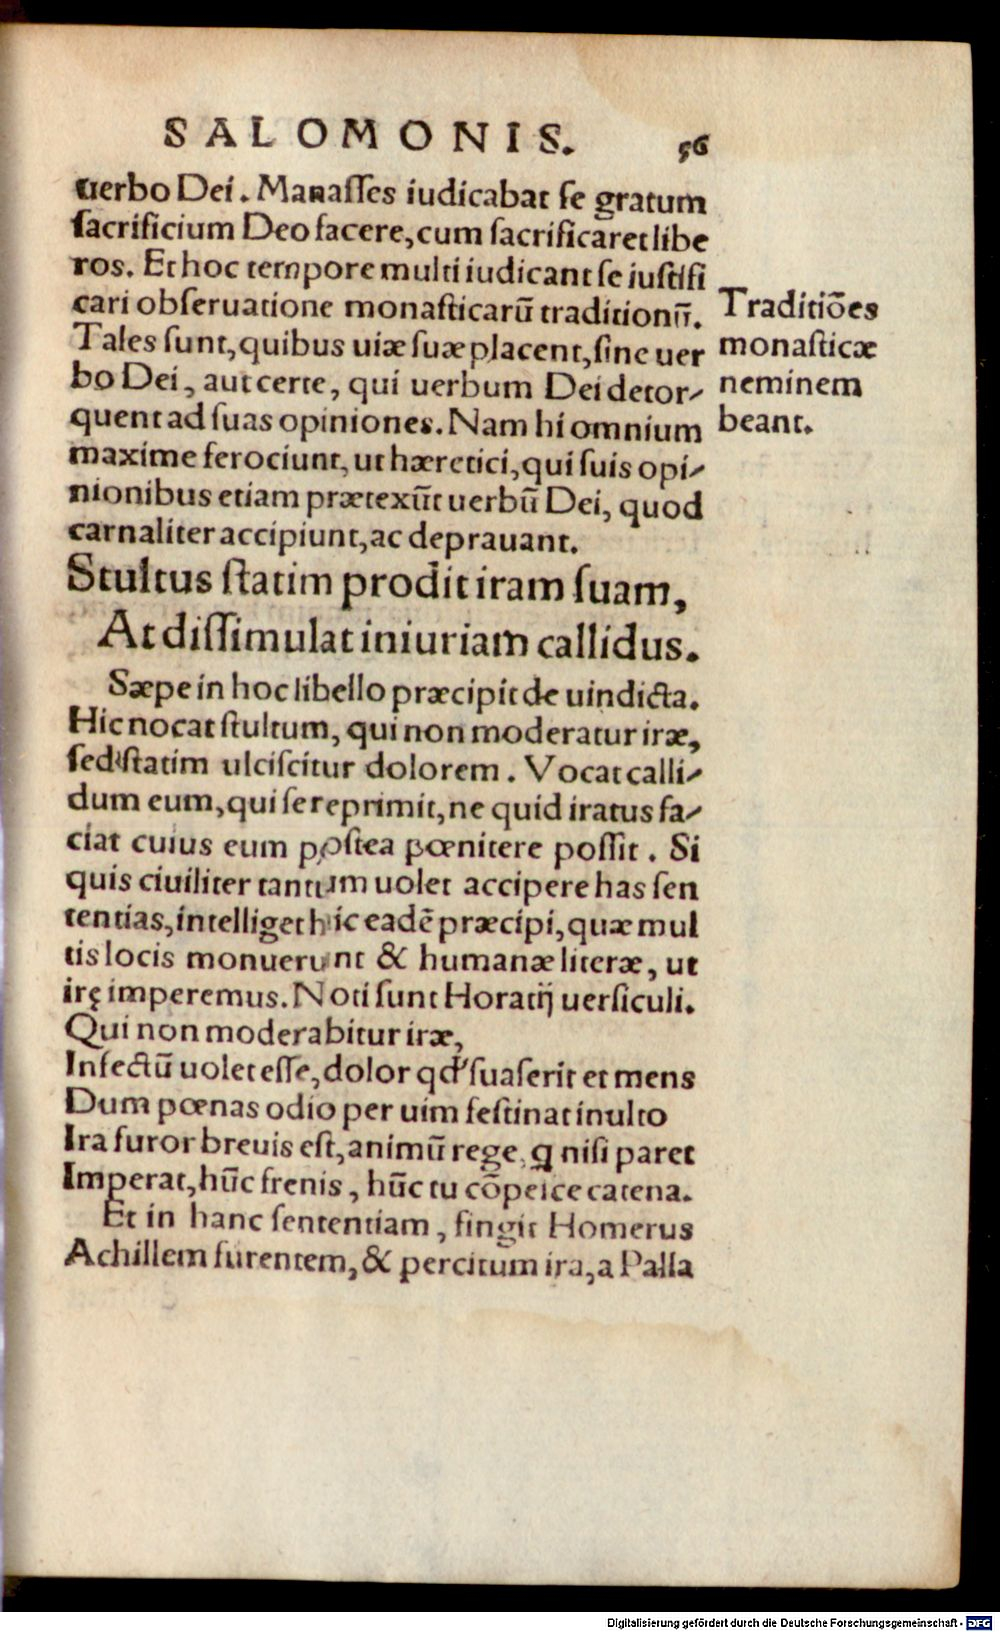 SALOMONIS. 56
uerbo Dei. Manasses iudicabat se gratum
sacrificium Deo facere, cum sacrificaret libe
ros. Et hoc tempore multi iudicant se iustifi
cari obseruatione monasticarū traditionū.
Tales sunt, quibus uiæ suæ placent, sine uer
bo Dei, aut certe, qui uerbum Dei detor-
quent ad suas opiniones. Nam hi omnium
maxime ferociunt, ut hæretici, qui suis opi-
nionibus etiam prætexūt uerbū Dei, quod
carnaliter accipiunt, ac deprauant.
Traditiōes
monasticæ
neminem
beant.
Stultus statim prodit iram suam,
At dissimulat iniuriam callidus.
Sæpe in hoc libello præcipit de uindicta.
Hic nocat stultum, qui non moderatur iræ,
sed statim ulciscitur dolorem. Vocat calli-
dum eum, qui se reprimit, ne quid iratus fa-
ciat cuius eum postea pœnitere possit. Si
quis ciuiliter tantum uolet accipere has sen
tentias, intelliget hic eadē præcipi, quæ mul
tis locis monuerunt & humanæ literæ, ut
irę imperemus. Noti sunt Horatij uersiculi.
Qui non moderabitur iræ,
Infectū uolet esse, dolor qđ suaserit et mens
Dum pœnas odio per uim festinat inulto
Ira furor breuis est, animū rege, q nisi paret
Imperat, hūc frenis, hūc tu cōpesce catena.
Et in hanc sententiam, fingit Homerus
Achillem furentem, & percitum ira, a Palla
Digitalisierung gefördert durch die Deutsche Forschungsgemeinschaft - DFG